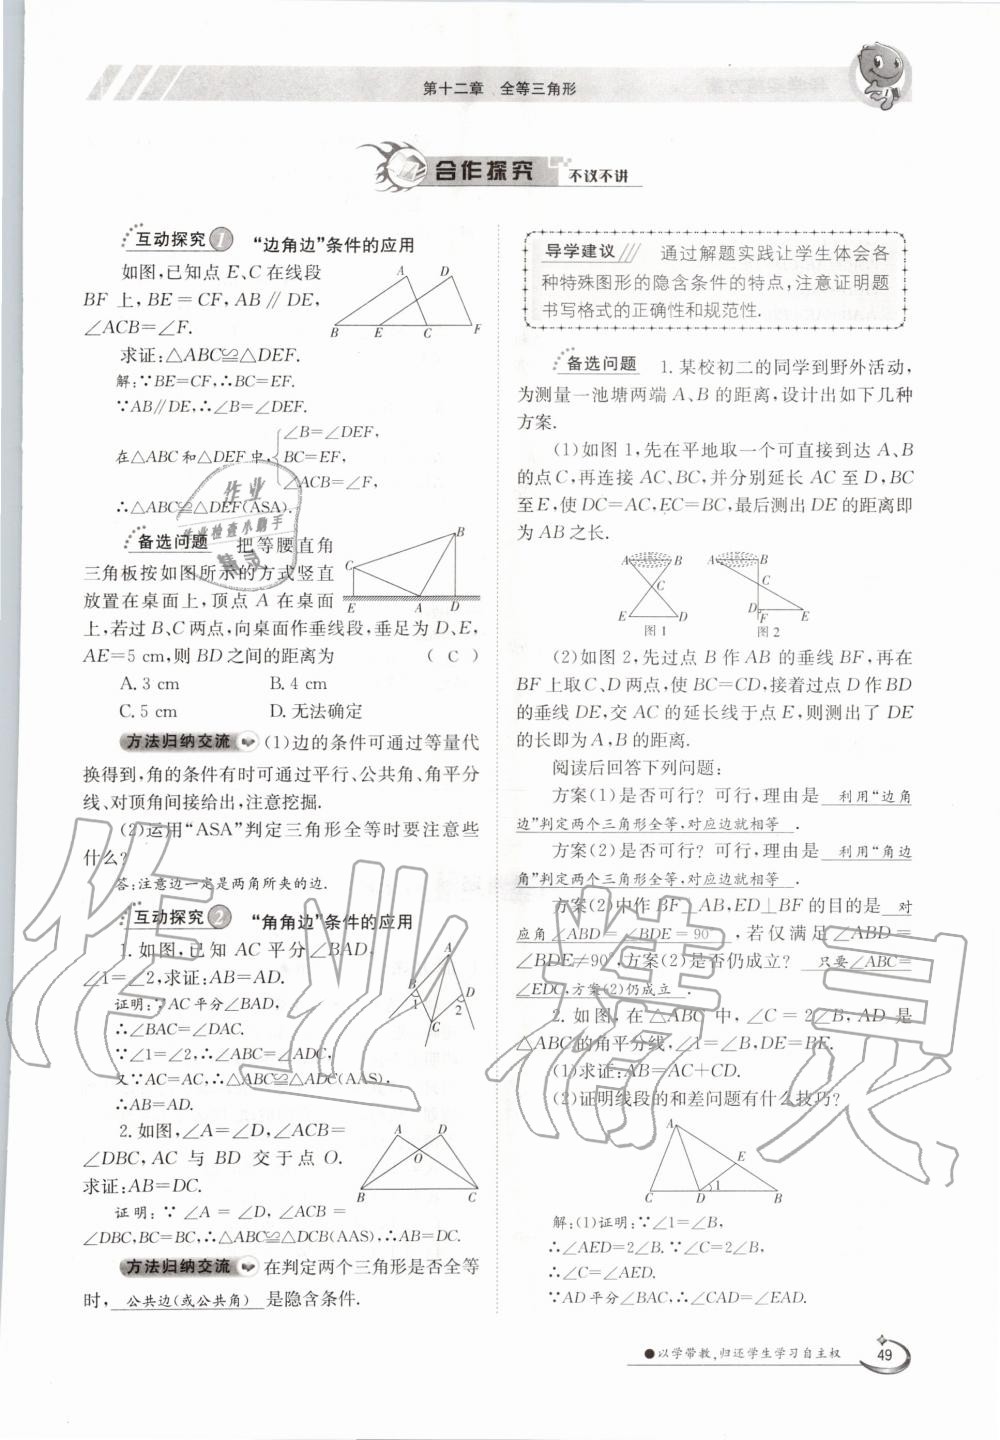 第十二章 全等三角形
合作探究 不议不讲
互动探究1 “边角边”条件的应用
如图,已知点 E、C 在线段
BF 上,BE=CF,AB∥DE,
∠ACB=∠F.
求证:△ABC≌△DEF.
解:∵BE=CF,∴BC=EF.
∵AB∥DE,∴∠B=∠DEF.
∠B=∠DEF,
在△ABC 和△DEF 中, BC=EF,
∠ACB=∠F,
∴△ABC≌△DEF(ASA).
A D
B E C F
备选问题 把等腰直角
三角板按如图所示的方式竖直
放置在桌面上,顶点 A 在桌面
上,若过 B、C 两点,向桌面作垂线段,垂足为 D、E,
AE=5 cm,则 BD 之间的距离为 ( C )
A. 3 cm B. 4 cm
C. 5 cm D. 无法确定
B
C
E A D
方法归纳交流 (1)边的条件可通过等量代
换得到,角的条件有时可通过平行、公共角、角平分
线、对顶角间接给出,注意挖掘.
(2)运用“ASA”判定三角形全等时要注意些
什么?
答:注意边一定是两角所夹的边.
互动探究2 “角角边”条件的应用
1. 如图,已知 AC 平分∠BAD,
∠1=∠2,求证:AB=AD.
证明:∵AC 平分∠BAD,
∴∠BAC=∠DAC.
∵∠1=∠2,∴∠ABC=∠ADC,
又∵AC=AC,∴△ABC≌△ADC(AAS),
∴AB=AD.
A
B D
1 2
C
2. 如图,∠A=∠D,∠ACB=
∠DBC,AC 与 BD 交于点 O.
求证:AB=DC.
证明:∵∠A=∠D,∠ACB=
∠DBC,BC=BC,∴△ABC≌△DCB(AAS),∴AB=DC.
A D
O
B C
方法归纳交流 在判定两个三角形是否全等
时, 公共边(或公共角) 是隐含条件.
导学建议 通过解题实践让学生体会各
种特殊图形的隐含条件的特点,注意证明题
书写格式的正确性和规范性.
备选问题 1. 某校初二的同学到野外活动,
为测量一池塘两端 A、B 的距离,设计出如下几种
方案.
(1)如图 1,先在平地取一个可直接到达 A、B
的点 C,再连接 AC、BC,并分别延长 AC 至 D,BC
至 E,使 DC=AC,EC=BC,最后测出 DE 的距离即
为 AB 之长.
A B A B
C C
E D D F E
图 1 图 2
(2)如图 2,先过点 B 作 AB 的垂线 BF,再在
BF 上取 C、D 两点,使 BC=CD,接着过点 D 作 BD
的垂线 DE,交 AC 的延长线于点 E,则测出了 DE
的长即为 A,B 的距离.
阅读后回答下列问题:
方案(1)是否可行?可行,理由是 利用“边角
边”判定两个三角形全等,对应边就相等 .
方案(2)是否可行?可行,理由是 利用“角边
角”判定两个三角形全等,对应边就相等 .
方案(2)中作 BF⊥AB,ED⊥BF 的目的是 对
应角∠ABD=∠BDE=90° ,若仅满足∠ABD=
∠BDE≠90°,方案(2)是否仍成立? 只要∠ABC=
∠EDC,方案(2)仍成立 .
2. 如图,在△ABC 中,∠C=2∠B,AD 是
△ABC 的角平分线,∠1=∠B,DE=BE.
(1)求证:AB=AC+CD.
(2)证明线段的和差问题有什么技巧?
A
E
1
C D B
解:(1)证明:∵∠1=∠B,
∴∠AED=2∠B.∵∠C=2∠B,
∴∠C=∠AED.
∵AD 平分∠BAC,∴∠CAD=∠EAD.
●以学带教,归还学生学习自主权
49
作业
作业检查小助手
精灵
作业精灵